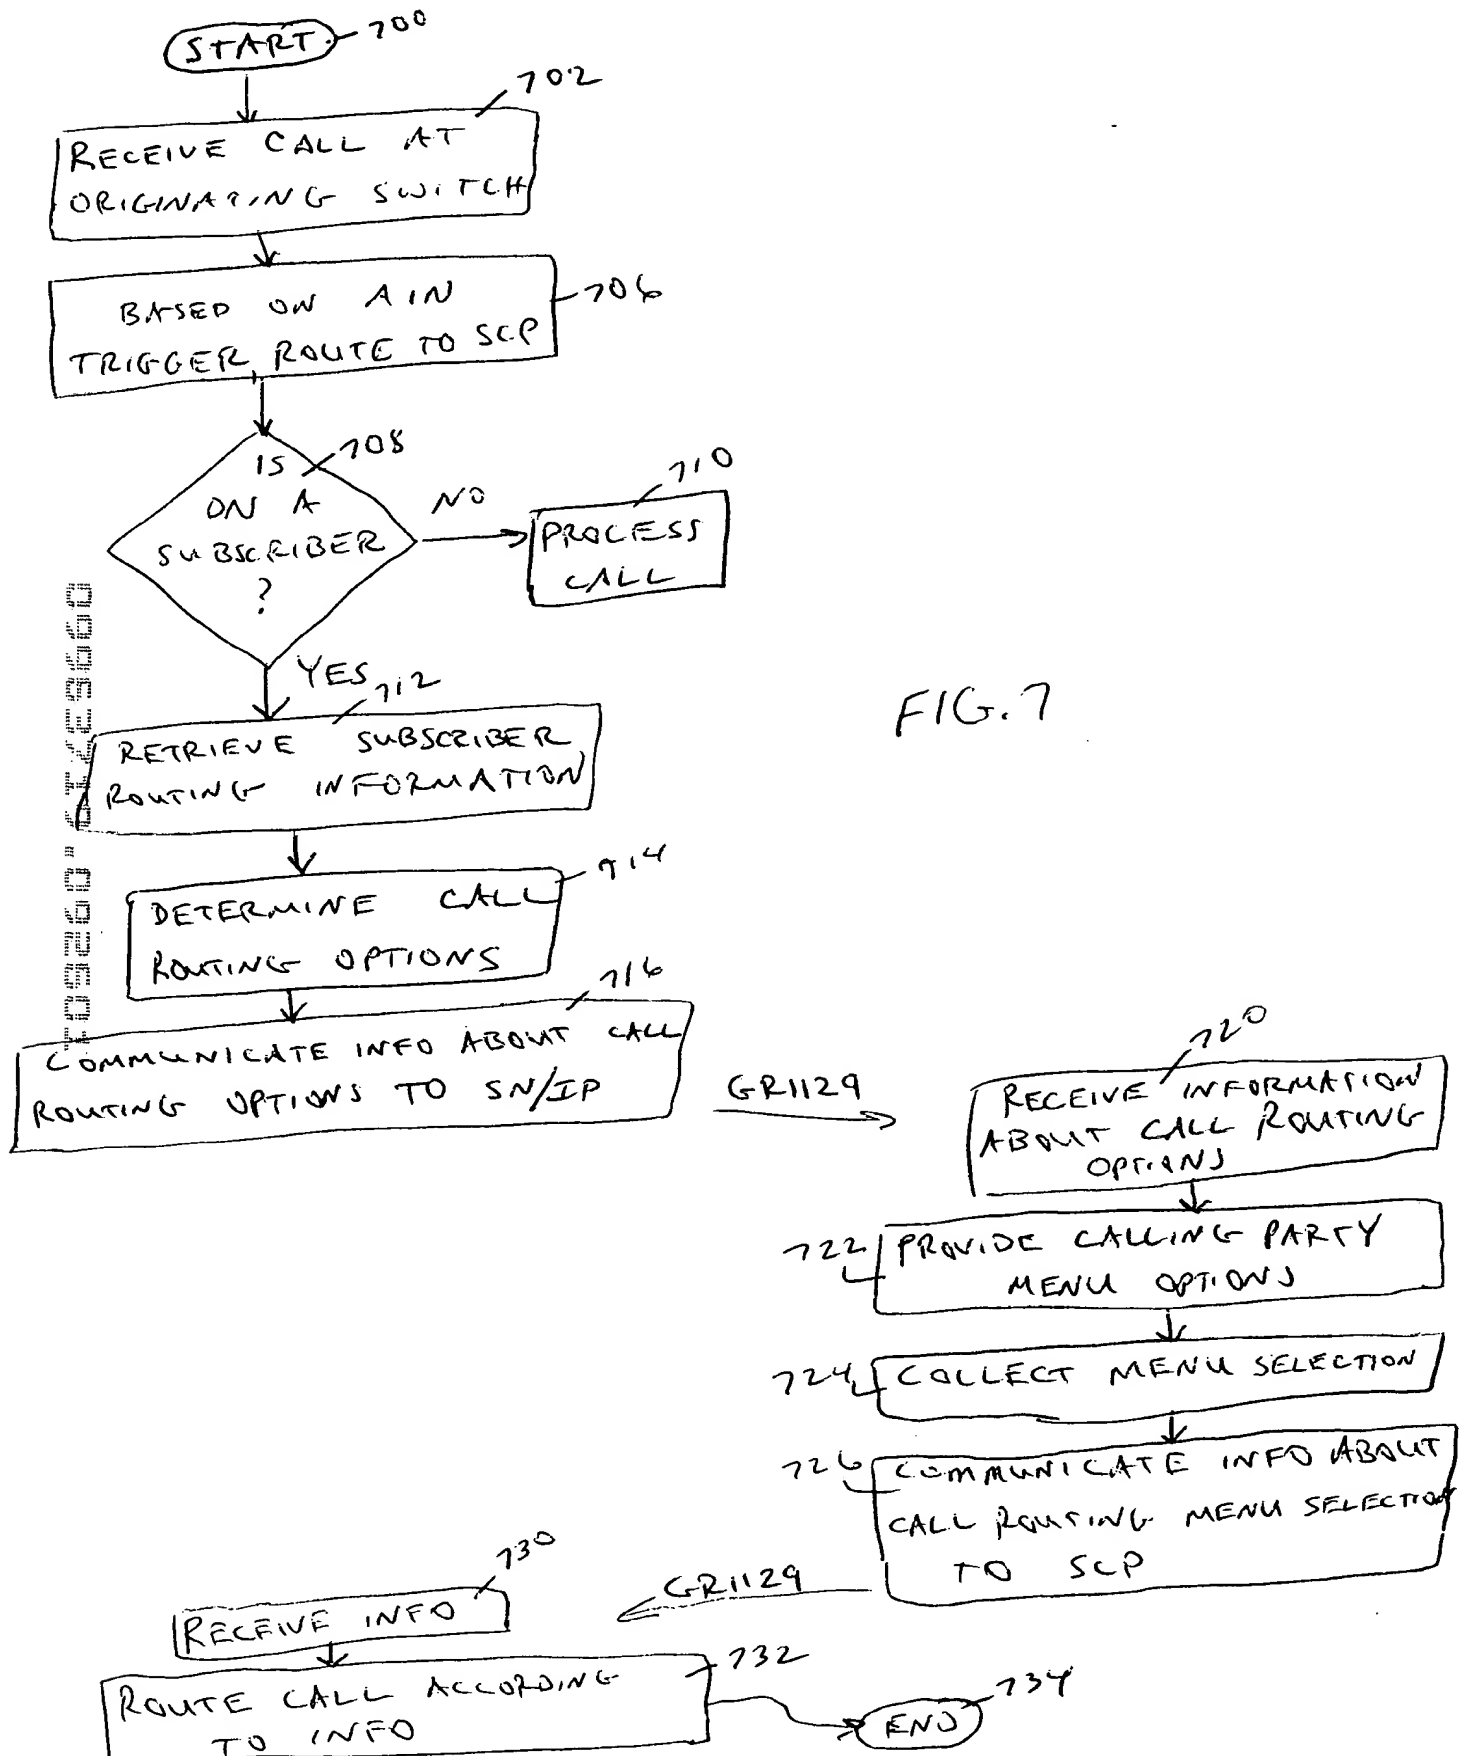 START 700
702
RECEIVE CALL AT
ORIGINATING SWITCH
BASED ON AIN
TRIGGER, ROUTE TO SCP
706
IS 708
ON A
SUBSCRIBER
?
NO
710
PROCESS
CALL
YES
712
RETRIEVE SUBSCRIBER
ROUTING INFORMATION
FIG. 7
714
DETERMINE CALL
ROUTING OPTIONS
716
COMMUNICATE INFO ABOUT CALL
ROUTING OPTIONS TO SN/IP
GR1129
720
RECEIVE INFORMATION
ABOUT CALL ROUTING
OPTIONS
722 PROVIDE CALLING PARTY
MENU OPTIONS
724 COLLECT MENU SELECTION
726 COMMUNICATE INFO ABOUT
CALL ROUTING MENU SELECTION
TO SCP
GR1129
730
RECEIVE INFO
732
ROUTE CALL ACCORDING
TO INFO
END 734